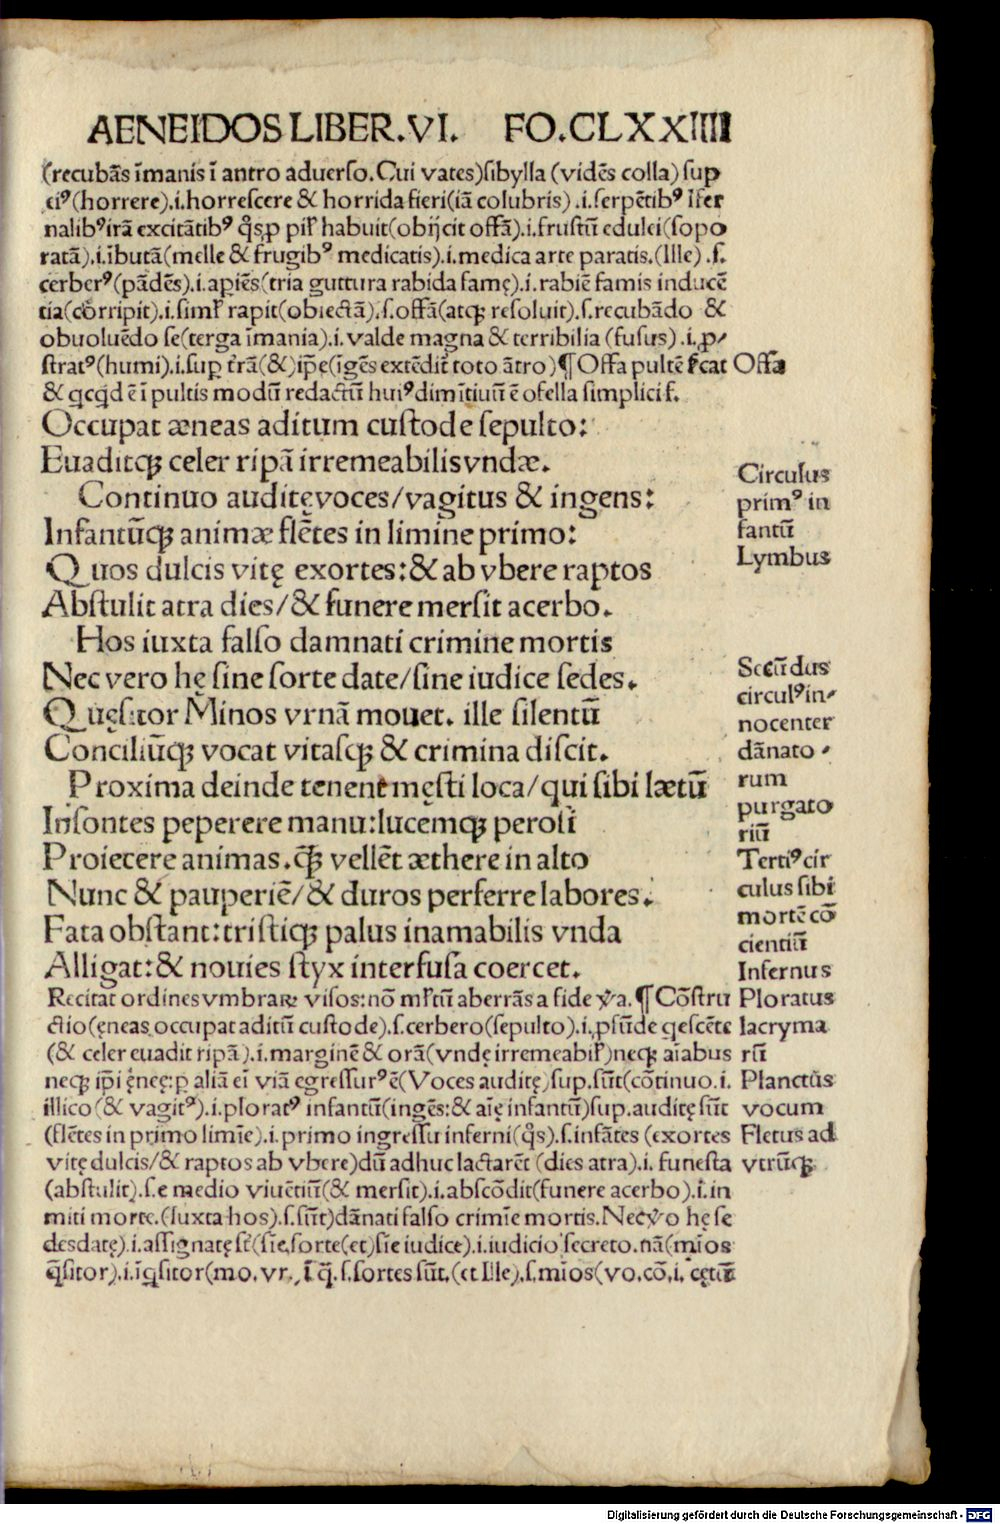 AENEIDOS LIBER.VI. FO.CLXXIIII
(recubãs ĩmanis ĩ antro aduerso.Cui vates)sibylla (vidẽs colla) sup
eiꝰ(horrere).i.horrescere & horrida fieri(iã colubris) .i.serpẽtibꝰ ĩfer
nalibꝰirã excitãtibꝰ habuit(obijcit offã).i.frustũ edulci(sopo
ratã).i.ĩbutã(melle & frugibꝰ medicatis).i.medica arte paratis.(Ille) .s.
cerberꝰ(pãdẽs).i.apiẽs(tria guttura rabida famę).i.rabiẽ famis inducẽ
tia(corripit).i.simł rapit(obiectã).s.offã(atqꝫ resoluit).s.recubãdo &
obuoluẽdo se(terga ĩmania).i.valde magna & terribilia (fusus) .i.ꝓ/
stratꝰ(humi).i.sup t̃rã(&)ip̃e(ĩgẽs extẽdit̃ toto ãtro)¶Offa pultẽ
& qcqd ẽ ĩ pultis modũ redactũ huiꝰdimĩtiuũ ẽ ofella simplici f.
Offa
Occupat æneas aditum custode sepulto:
Euaditqꝫ celer ripã irremeabilis vndæ.
Continuo auditę voces/vagitus & ingens:
Infantũqꝫ animæ flẽtes in limine primo:
Quos dulcis vitę exortes:& ab vbere raptos
Abstulit atra dies/& funere mersit acerbo.
Hos iuxta falso damnati crimine mortis
Nec vero hę sine sorte date/sine iudice sedes.
Quęsitor Minos vrnã mouet. ille silentũ
Conciliũqꝫ vocat vitasqꝫ & crimina discit.
Proxima deinde tenent męsti loca/qui sibi lætũ
Insontes peperere manu:lucemqꝫ perosi
Proiecere animas.q̃ꝫ vellẽt æthere in alto
Nunc & pauperiẽ/& duros perferre labores.
Fata obstant:tristiqꝫ palus inamabilis vnda
Alligat:& nouies styx interfusa coercet.
Circulus
primꝰ in
fantũ
Lymbus
Secũdus
circulꝰin/
nocenter
dãnato/
rum
purgato
riũ
Tertiꝰcir
culus sibi
mortẽ cõ
cientiũ
Infernus
Recitat ordines vmbraꝝ visos:nõ aberrãs a fide ¶Cõstru
ctio(ęneas occupat aditũ custode).s.cerbero(sepulto).i.ꝓfũde qescẽte
(& celer euadit ripã).i.marginẽ & orã(vndę irremeabił)neqꝫ aĩabus
neqꝫ ip̃i ęnęę:ꝑ aliã eĩ viã egressurꝰ ẽ(Voces auditę)sup.sũt(cõtinuo.i.
illico(& vagitꝰ).i.ploratꝰ infantũ(ingẽs:& aĩę infantũ)sup.auditę sũt
(flẽtes in primo limĩe).i.primo ingressu inferni(q̊s).s.infãtes (exortes
vitę dulcis/& raptos ab vbere)dũ adhuc lactarẽt (dies atra).i. funesta
(abstulit).s.e medio viuẽtiũ(& mersit).i.abscõdit(funere acerbo).i.in
miti morte.(Iuxta hos).s.sũt)dãnati falso crimĩe mortis.Nec ṽo hę se
des datę).i.assignatę st̃(sĩe sorte(et)sĩe iudice).i.iudicio secreto.nã(mĩos
q̃sitor).i.ĩqsitor(mo.vr., ĩ q̃.s.sortes sũt.(et Ille).s.mĩos(vo.cõ.i.cętũ
Ploratus
lacryma
rũ
Planctũs
vocum
Fletus ad
vtrũqꝫ
Digitalisierung gefördert durch die Deutsche Forschungsgemeinschaft - DFG